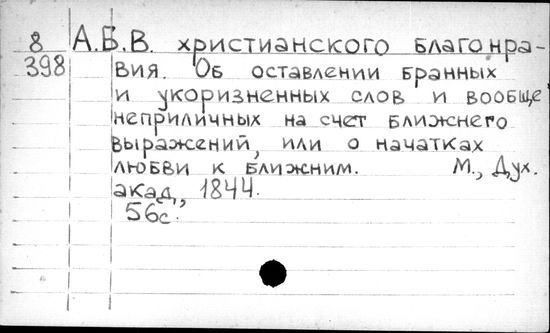 8 А.Б.В. христианского благонра-
398 вия. Об оставлении бранных
и укоризненных слов и вообще
неприличных на счет ближнего
выражений, или о начатках
любви к ближним. М., Дух.
акад., 1844.
56с.